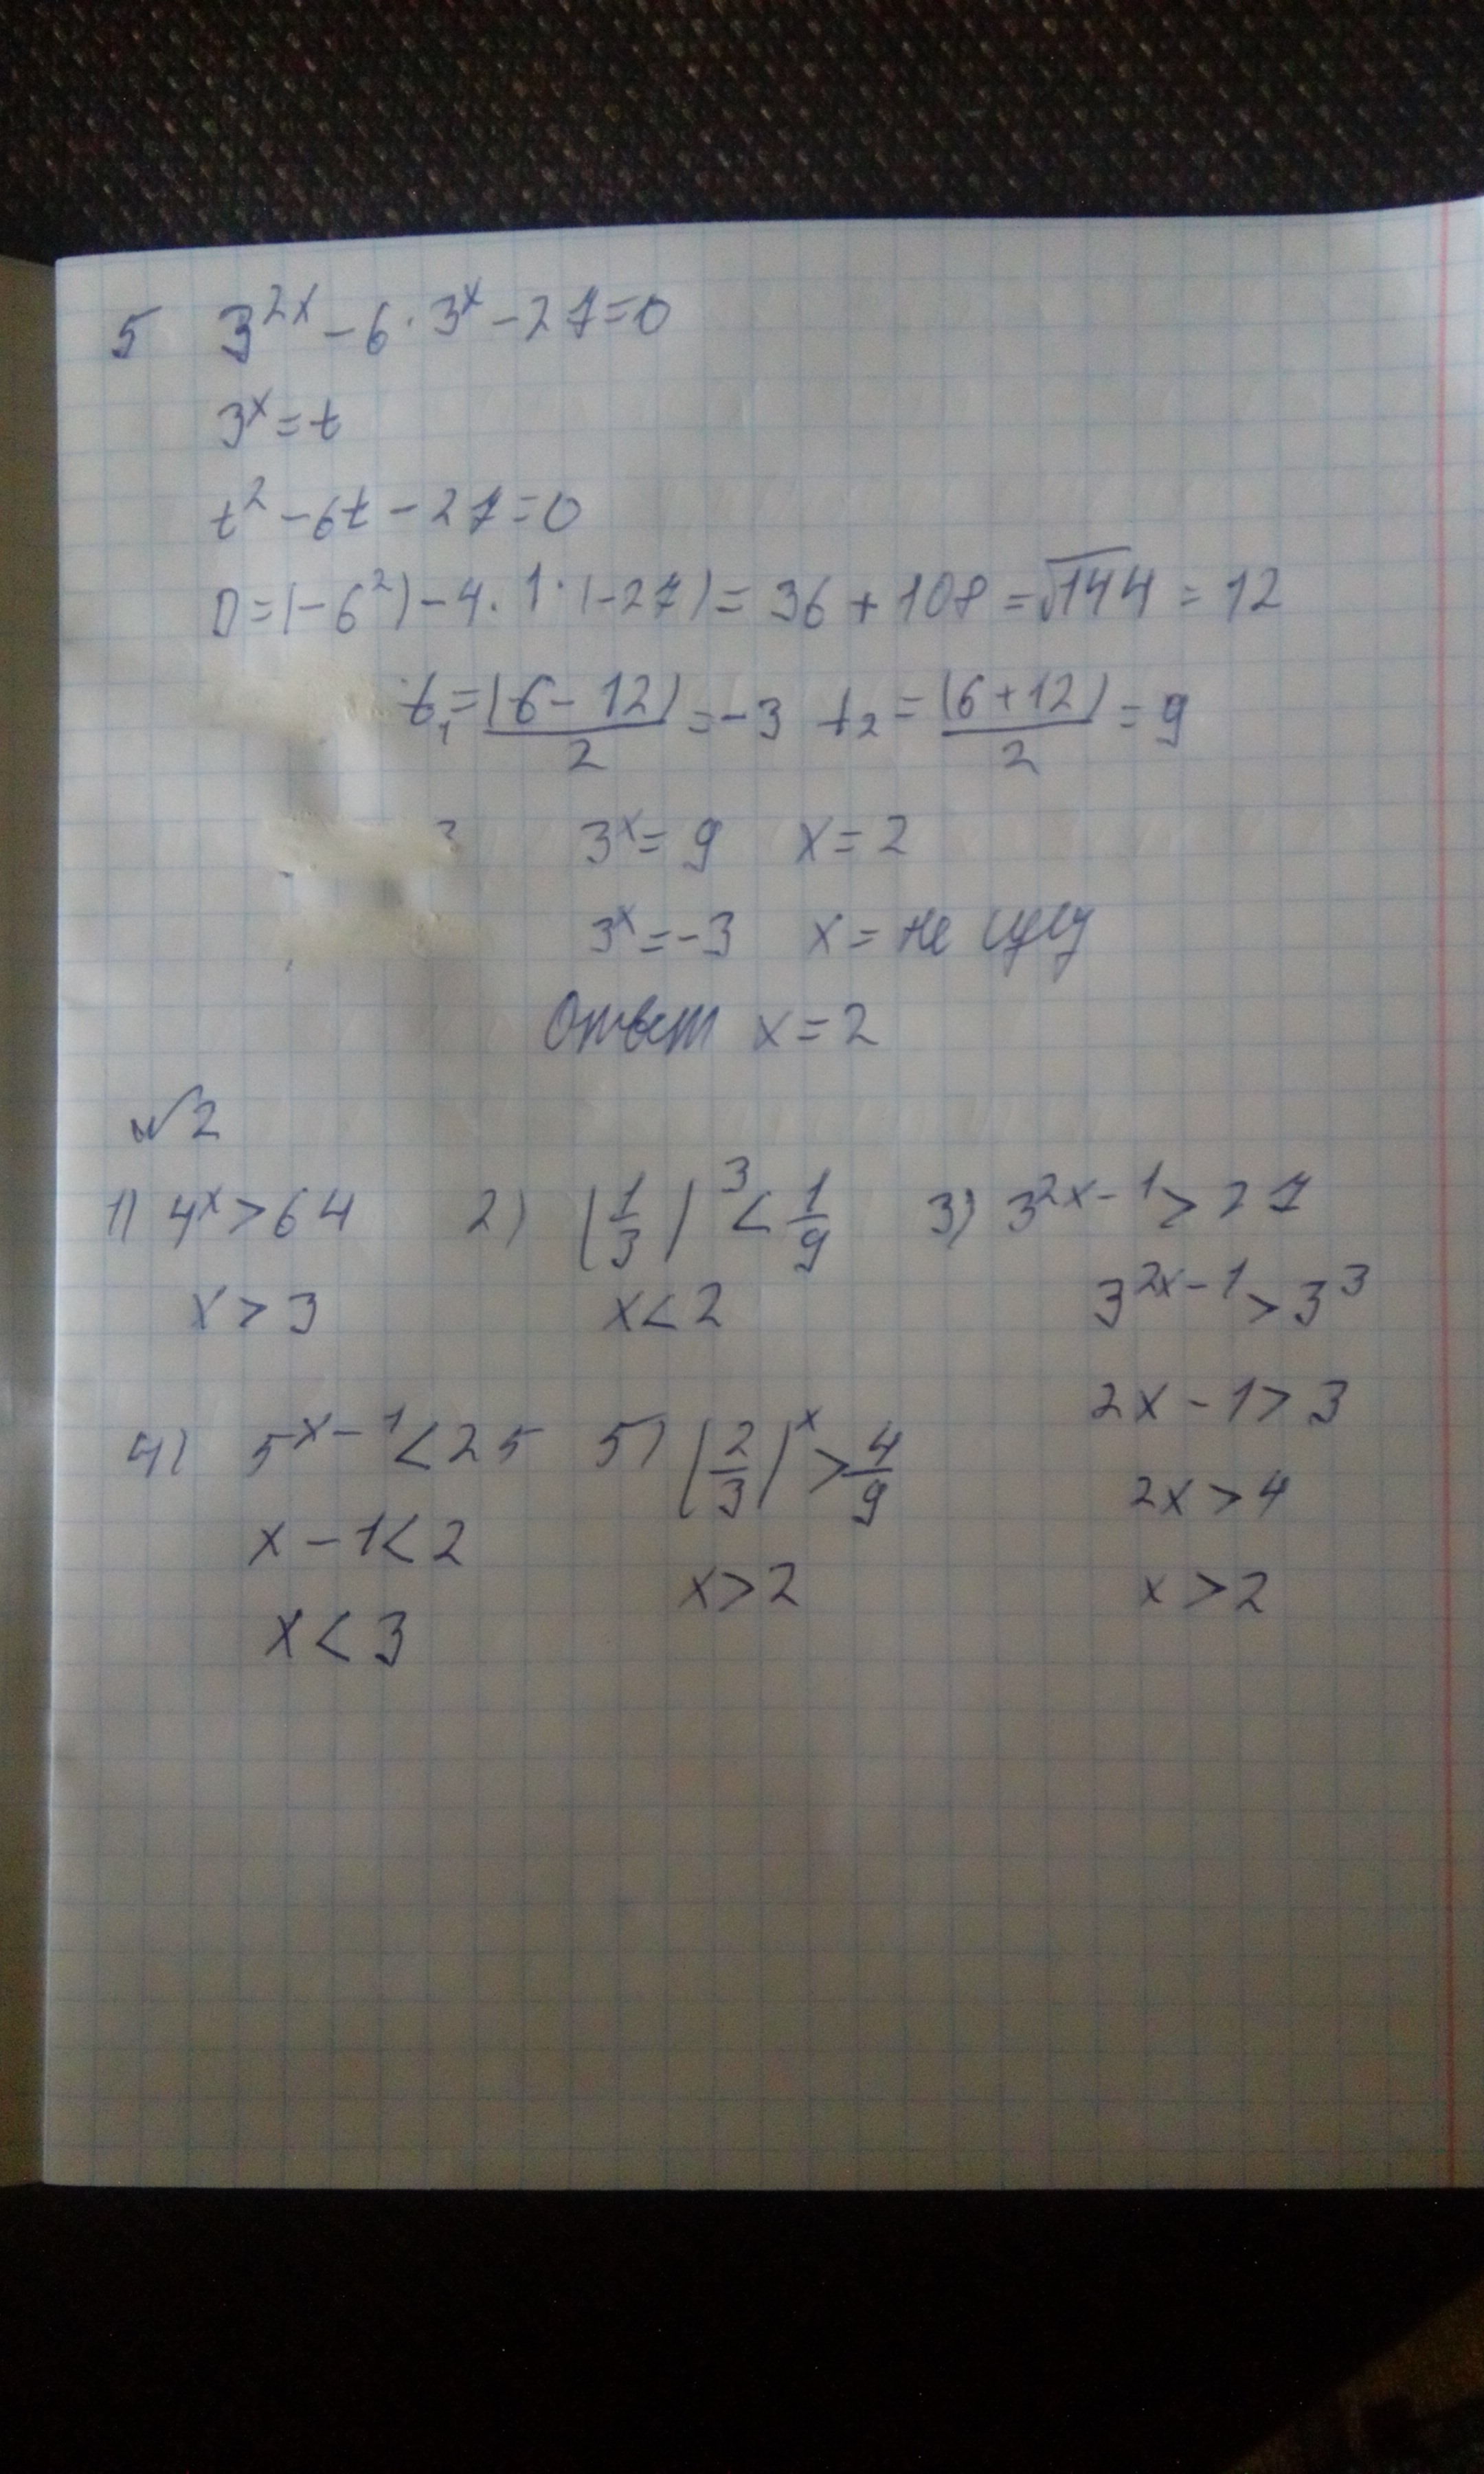 5 3^{2x} - 6 · 3^x - 27 = 0
3^x = t
t^2 - 6t - 27 = 0
D = (-6^2) - 4 · 1 · (-27) = 36 + 108 = √144 = 12
t_1 = (6 - 12)/2 = -3 t_2 = (6 + 12)/2 = 9
3^x = 9 x = 2
3^x = -3 x = не сущ
Ответ x = 2
№2
1) 4^x > 64 2) (1/3)^3 < 1/9 3) 3^{2x-1} > 27
x > 3 x < 2 3^{2x-1} > 3^3
2x - 1 > 3
4) 5^{x-1} < 25 5) (2/3)^x > 4/9
2x > 4
x - 1 < 2
x > 2 x > 2
x < 3